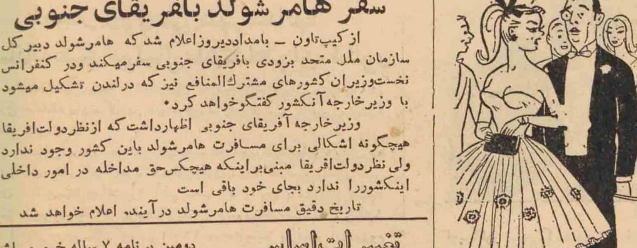 سفر هامر شولد بافریقای جنوبی
از کیپ‌تاون ــ بامداددیروزاعلام شدکه هامرشولد دبیرکل
سازمان ملل متحد بزودی بافریقای جنوبی سفرمیکند ودر کنفرانس
نخست‌وزیران‌کشورهای مشترك‌المنافع نیز که درلندن تشکیل میشود
با وزیرخارجه آنکشور گفتگوخواهد کرد۰
وزیرخارجه آفریقای جنوبی اظهارداشت‌که ازنظردولت‌افریقا
هیچگونه اشکالی برای مسافرت هامرشولد باین کشور وجود ندارد
ولی نظردولت‌افریقا مبنی‌براینکه هیچکس‌حق مداخله در امور داخلی
اینکشوررا ندارد بجای خود باقی است
تاریخ دقیق مسافرت هامرشولد درآینده اعلام خواهد شد
دومین برنامه ۷ ساله